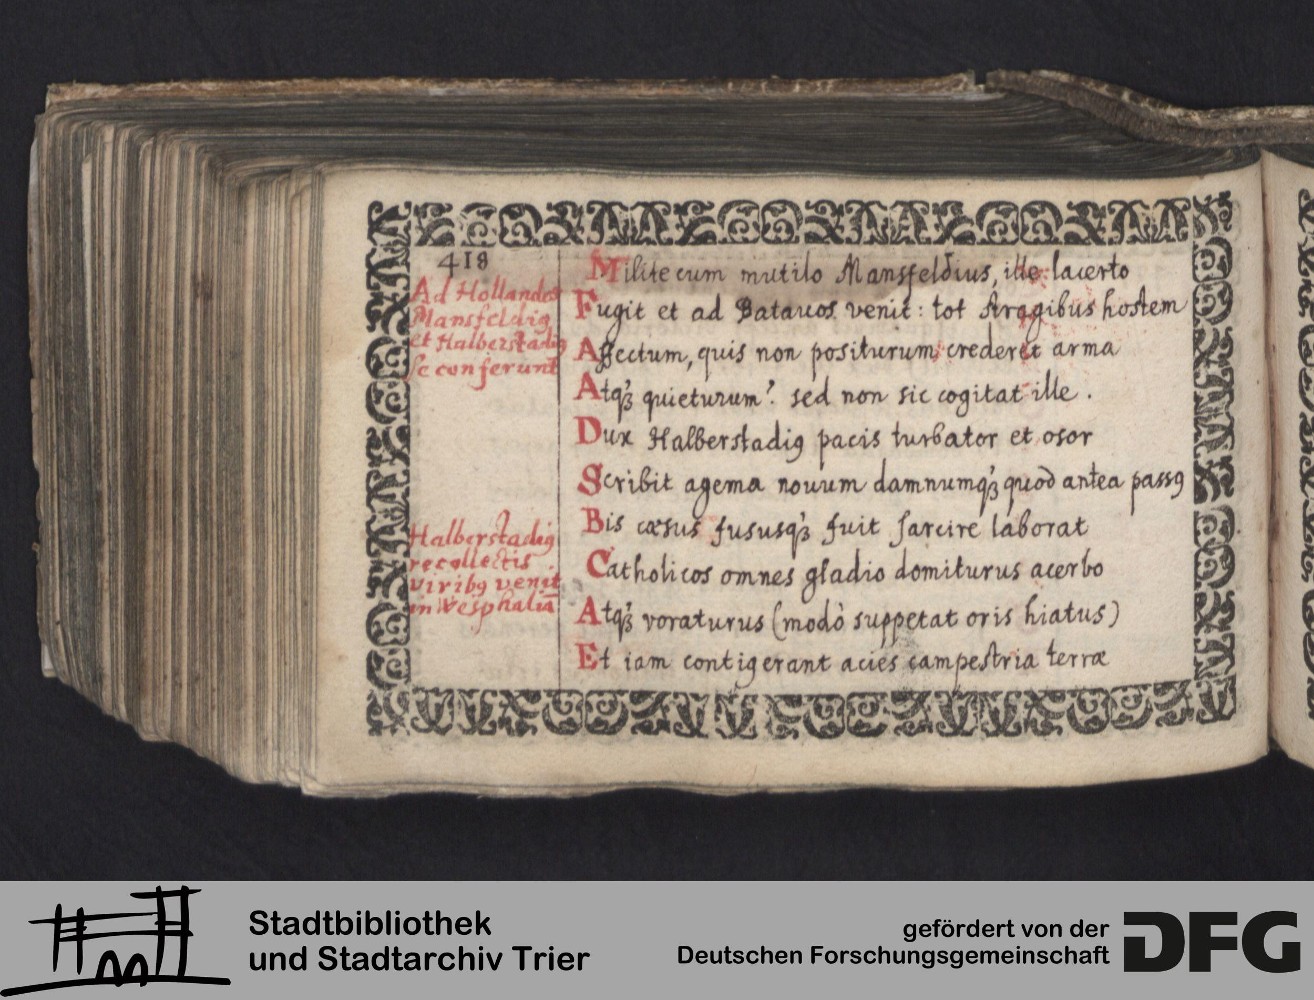 418
Ad Hollandos
Mansfeldi9
et Halberstadi9
se conferunt
Milite cum mutilo Mansfeldius, ille lacerto
Fugit et ad Batavos venit: tot stragibus hostem
Affectum, quis non positurum crederet arma
Atqꝫ quieturum? sed non sic cogitat ille.
Dux Halberstadi9 pacis turbator et osor
Scribit agema nouum damnumqꝫ quod antea pass9
Bis cæsus fususqꝫ fuit sarcire laborat
Catholicos omnes gladio domiturus acerbo
Atqꝫ voraturus (modò suppetat oris hiatus)
Et iam contigerant acies campestria terræ
Halberstadi9
recollectis
virib9 venit
in Wesphaliā
Stadtbibliothek
und Stadtarchiv Trier
gefördert von der
Deutschen Forschungsgemeinschaft
DFG